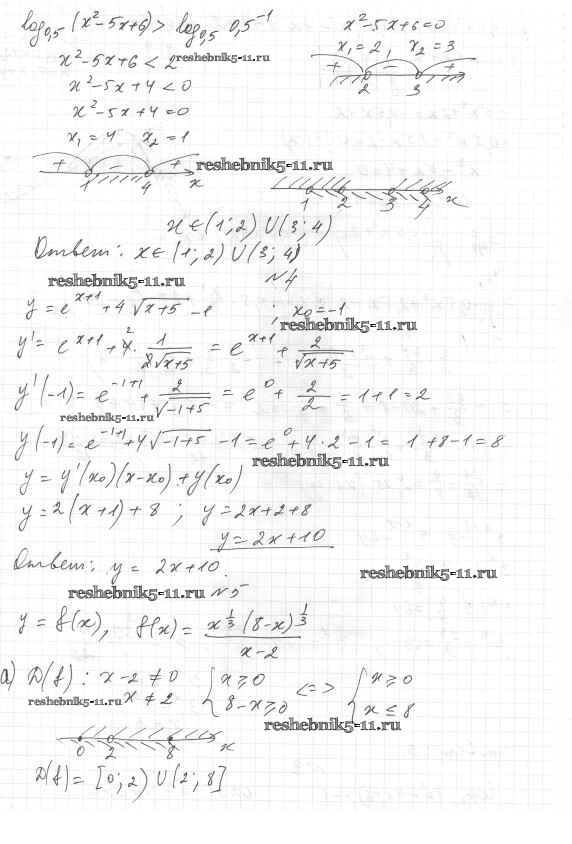 log₀,₅ (x²-5x+6) > log₀,₅ 0,5⁻¹
x²-5x+6=0
x²-5x+6 < 2 reshebnik5-11.ru
x₁=2, x₂=3
x²-5x+4 < 0
+ - +
2 3
x²-5x+4=0
x₁=4 x₂=1
+ - + reshebnik5-11.ru
1 4 x
1 2 3 4 x
x∈(1;2)∪(3;4)
Ответ: x∈(1;2)∪(3;4)
reshebnik5-11.ru №4
y = e^(x+1) + 4√(x+5) - 1 ; x₀=-1
reshebnik5-11.ru
y' = e^(x+1) + 4· 1/(2√(x+5)) = e^(x+1) + 2/√(x+5)
y'(-1) = e^(-1+1) + 2/√(-1+5) = e⁰ + 2/2 = 1+1=2
reshebnik5-11.ru
y(-1) = e^(-1+1) + 4√(-1+5) - 1 = e⁰ + 4·2 - 1 = 1+8-1=8
reshebnik5-11.ru
y = y'(x₀)(x-x₀)+y(x₀)
y=2(x+1)+8 ; y=2x+2+8
y=2x+10
Ответ: y = 2x+10.
reshebnik5-11.ru
reshebnik5-11.ru №5
y = f(x), f(x) = x^(1/3) (8-x)^(1/3) / (x-2)
а) D(f): x-2≠0 { x⩾0 <=> { x⩾0
reshebnik5-11.ru x≠2 8-x⩾0 x≤8
reshebnik5-11.ru
0 2 8 x
D(f) = [0;2)∪(2;8]